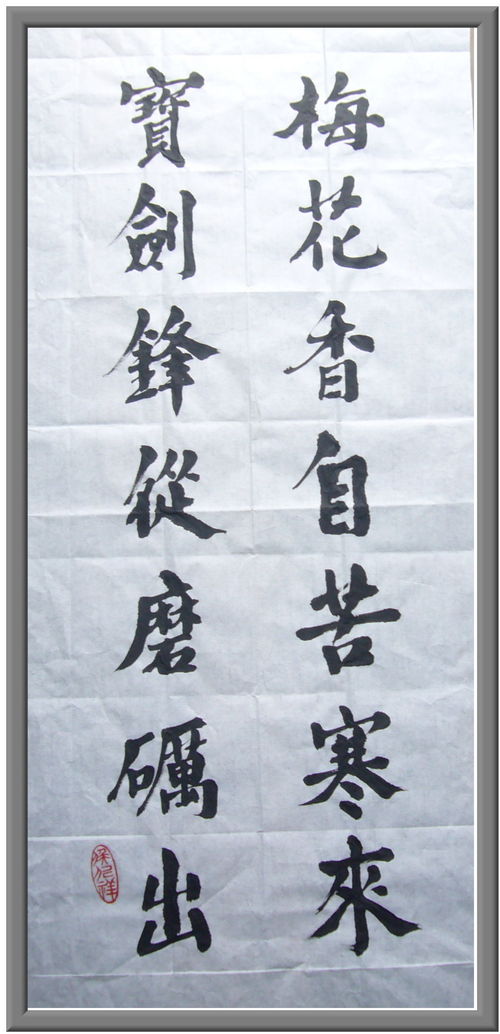 梅花香自苦寒來
寶劍鋒從磨礪出